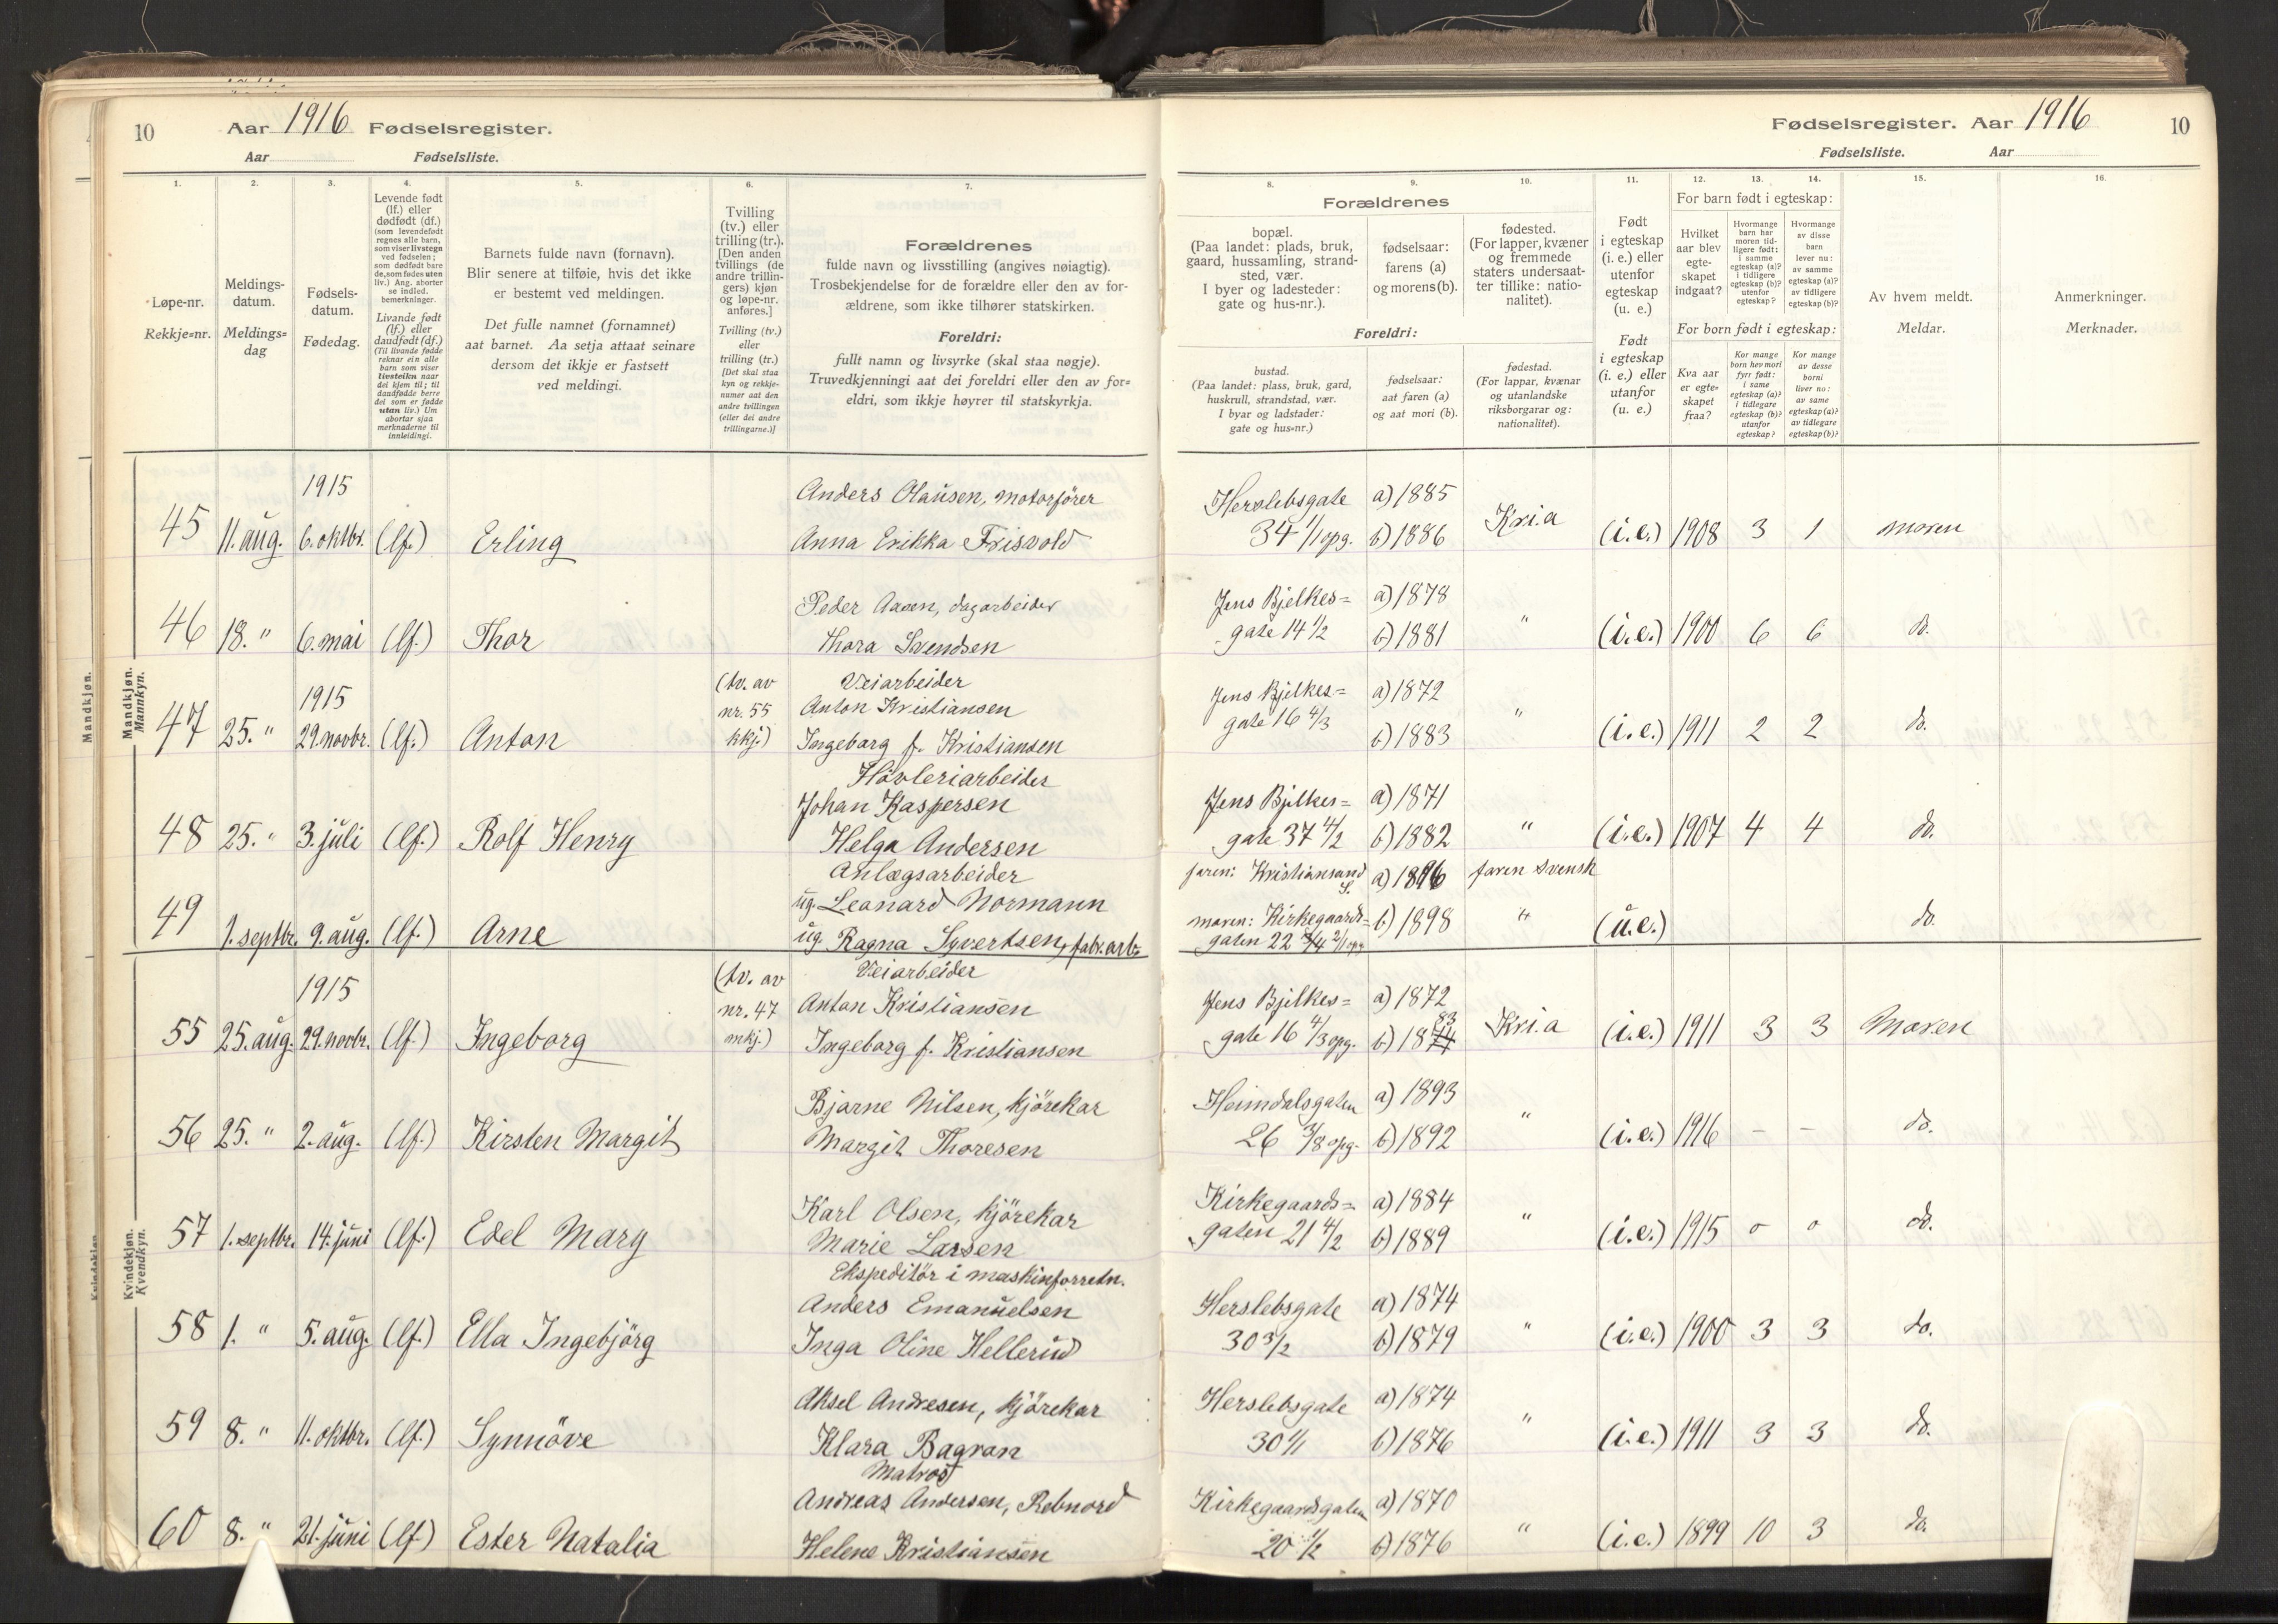 10 Aar 1916 Fødselsregister.
Aar Fødselsliste.
Fødselsregister. Aar 1916 10
Fødselsliste. Aar
1.
Løpe-nr.
Rekkje=nr.
2.
Meldings-
datum.
Meldings=
dag
3.
Fødsels-
datum.
Fødedag.
4.
Levende født
(lf.) eller
dødfødt (df.)
(som levendefødt
regnes alle barn,
som viser livstegn
ved fødselen;
som dødfødt bare
de, som fødes uten
liv.) Ang. aborter
se indled.
bemerkninger.
Livande født
(lf.) eller
daudfødt (df.)
(Til livande fødde
reknar ein alle
barn som viser
livsteikn naar
dei kjem til; til
daudfødde berre
dei som er fødde
utan liv.) Um
abortar sjaa
merknaderne til
innleidingi.
5.
Barnets fulde navn (fornavn).
Blir senere at tilføie, hvis det ikke
er bestemt ved meldingen.
Det fulle namnet (fornamnet)
aat barnet. Aa setja attaat seinare
dersom det ikkje er fastsett
ved meldingi.
6.
Tvilling
(tv.) eller
trilling (tr.).
[Den anden
tvillings (de
andre trillin-
gers) kjøn
og løpe-nr.
anføres.]
Tvilling (tv.)
eller
trilling (tr.)
[Det skal staa
kyn og rekkje-
numer aat den
andre tvillingen
(eller dei andre
trillingarne.)]
7.
Forældrenes
fulde navn og livsstilling (angives nøiagtig).
Trosbekjendelse for de forældre eller den av for-
ældrene, som ikke tilhører statskirken.
Foreldri:
fullt namn og livsyrke (skal staa nøgje).
Truvedkjenningi aat dei foreldri eller den av for=
eldri, som ikkje høyrer til statskyrkja.
Forældrenes
8.
bopæl.
(Paa landet: plads, bruk,
gaard, hussamling, strand-
sted, vær.
I byer og ladesteder:
gate og hus-nr.).
9.
fødselsaar:
farens (a)
og morens (b).
10.
fødested.
(For lapper, kvæner
og fremmede
staters undersaat-
ter tillike: natio-
nalitet).
Foreldri:
bustad.
(Paa landet: plass, bruk, gard,
huskrull, strandstad, vær.
I byar og ladstader:
gate og hus=nr.)
fødselsaar:
aat faren (a)
og aat mori (b).
fødestad.
(For lappar, kvænar
og utanlandske
riksborgarar og:
nationalitet).
11.
Født
i egteskap
(i. e.) eller
utenfor
egteskap
(u. e.)
Født
i egteskap
(i. e.) eller
utanfor
(u. e.)
For barn født i egteskap:
12.
Hvilket
aar blev
egte-
skapet
indgaat?
13.
Hvormange
barn har
moren tid-
ligere født:
i samme
egteskap (a)?
i tidligere
egteskap (b)?
utenfor
egteskap?
14.
Hvormange
av disse
barn
lever nu:
av samme
egteskap (a)?
av tidligere
egteskap (b)?
For born født i egteskap:
Kva aar
er egte-
skapet
fraa?
Kor mange
born hev mori
fyrr født:
i same
egteskap (a)?
i tidlegare
egteskap (b)?
utanfor
egteskap?
Kor mange
av desse
borni
liver no:
av same
egteskap (a)?
av tidlegare
egteskap (b)?
15.
Av hvem meldt.
Meldar.
16.
Anmerkninger.
Merknader.
Mandkjøn.
Mandkjøn.
Mannkyn.
1915
Anders Olausen, motorfører Herslebsgate a) 1885
45 11. aug. 6. oktbr. (lf.) Erling Anna Erikka Frisvold 34 1/1 opg. b) 1886 Kri.a (i.e.) 1908 3 1 moren
Peder Aasen, dagarbeider Jens Bjelkes= a) 1878
46 18. " 6. mai (lf.) Thor Thora Svendsen gate 14 1/2 b) 1881 " (i.e.) 1900 6 6 do.
1915 (tv. av Veiarbeider
nr. 55 Anton Kristiansen Jens Bjelkes= a) 1872
47 25. " 29. novbr. (lf.) Anton kkj.) Ingeborg f. Kristiansen gate 16 4/3 b) 1883 " (i.e.) 1911 2 2 do.
Høvleriarbeider
Johan Kaspersen Jens Bjelkes= a) 1871
48 25. " 3. juli (lf.) Rolf Henry Helga Andersen gate 37 4/2 b) 1882 " (i.e.) 1907 4 4 do.
Anlægsarbeider faren: Kristiansand S. a) 1896 faren svensk
ug. Leonard Normann moren: Kirkegaards=
49 1. septbr. 9. aug. (lf.) Arne ug. Ragna Syvertsen, fabr.arb. gaten 22 3/4 2/1 opg b) 1898 " (u.e.) do.
Kvindekjøn.
Kvendkyn.
1915 (tv. av Veiarbeider
nr. 47 Anton Kristiansen Jens Bjelkes= a) 1872
55 25. aug. 29. novbr. (lf.) Ingeborg mkj.) Ingeborg f. Kristiansen gate 16 4/3 opg. b) 1883 Kri.a (i.e.) 1911 3 3 Moren
Bjarne Nilsen, kjørekar Heimdalsgaten a) 1893
56 25. " 2. aug. (lf.) Kirsten Margit Margit Thoresen 26 3/8 opg. b) 1892 " (i.e.) 1916 - - do.
Karl Olsen, kjørekar Kirkegaards= a) 1884
57 1. septbr. 14. juni (lf.) Edel Mary Marie Larsen gaten 21 4/2 b) 1889 " (i.e.) 1915 o o do.
Ekspeditør i maskinforretn.
Anders Emanuelsen Herslebsgate a) 1874
58 1. " 5. aug. (lf.) Ella Ingebjörg Inga Oline Hellerud 30 3/2 b) 1879 " (i.e.) 1900 3 3 do.
Aksel Andresen, kjørekar Herslebsgate a) 1874
59 8. " 11. oktbr. (lf.) Synnöve Klara Bagran 30 1/1 b) 1876 " (i.e.) 1911 3 3 do.
Matros
Andreas Andersen, Rebnord Kirkegaardsgaten a) 1870
60 8. " 21. juni (lf.) Ester Natalia Helene Kristiansen 20 1/2 b) 1876 " (i.e.) 1899 10 3 do.